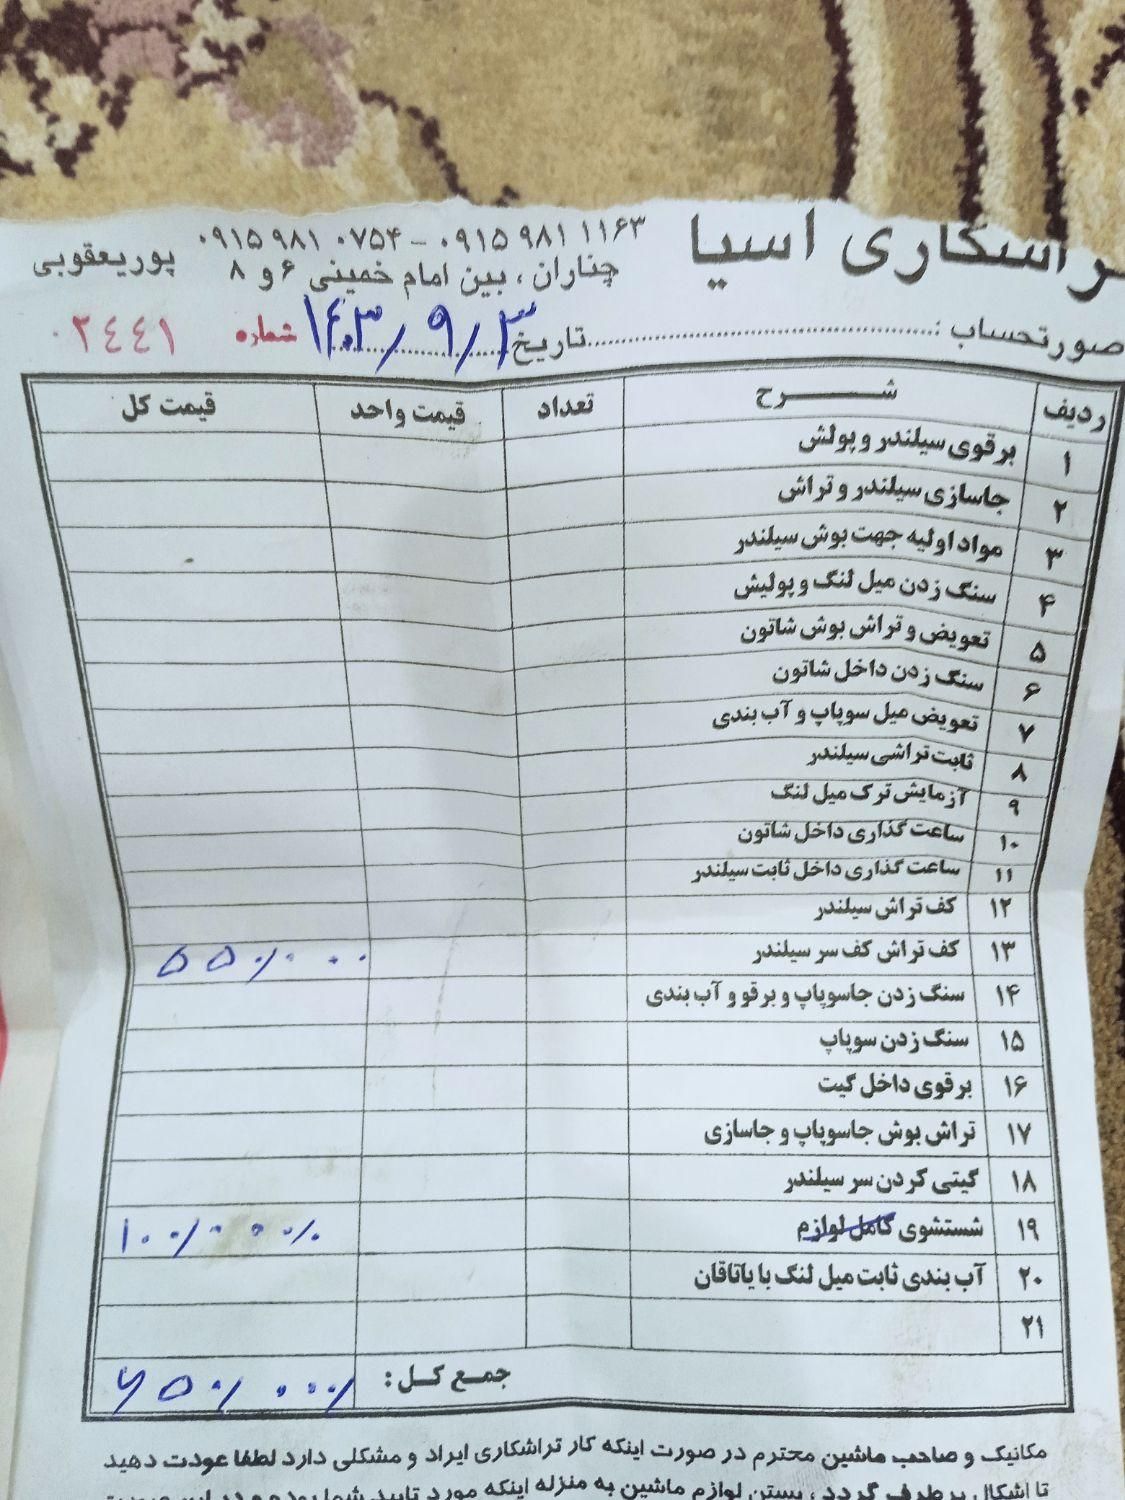 تراشکاری آسیا
۰۹۱۵ ۹۸۱ ۰۷۵۴ - ۰۹۱۵ ۹۸۱ ۱۱۶۳
چناران ، بین امام خمینی ۶ و ۸ پوریعقوبی
صورتحساب : تاریخ ۱۴۰۳/۹/۳ شماره ۰۲۴۴۱
ردیف شرح تعداد قیمت واحد قیمت کل
۱ برقوی سیلندر و پولش
۲ جاسازی سیلندر و تراش
۳ مواد اولیه جهت بوش سیلندر
۴ سنگ زدن میل لنگ و پولیش
۵ تعویض و تراش بوش شاتون
۶ سنگ زدن داخل شاتون
۷ تعویض میل سوپاپ و آب بندی
۸ ثابت تراشی سیلندر
۹ آزمایش ترک میل لنگ
۱۰ ساعت گذاری داخل شاتون
۱۱ ساعت گذاری داخل ثابت سیلندر
۱۲ کف تراش سیلندر
۱۳ کف تراش کف سر سیلندر ۵۵۰/۰۰۰
۱۴ سنگ زدن جاسوپاپ و برقو و آب بندی
۱۵ سنگ زدن سوپاپ
۱۶ برقوی داخل گیت
۱۷ تراش بوش جاسوپاپ و جاسازی
۱۸ گیتی کردن سر سیلندر
۱۹ شستشوی کامل لوازم ۱۰۰/۰۰۰/
۲۰ آب بندی ثابت میل لنگ با یاتاقان
۲۱
جمع کل : ۶۵۰/۰۰۰/
مکانیک و صاحب ماشین محترم در صورت اینکه کار تراشکاری ایراد و مشکلی دارد لطفا عودت دهید
تا اشکال برطرف گردد ، بستن لوازم ماشین به منزله اینکه مورد تایید شما بوده و در این صورت